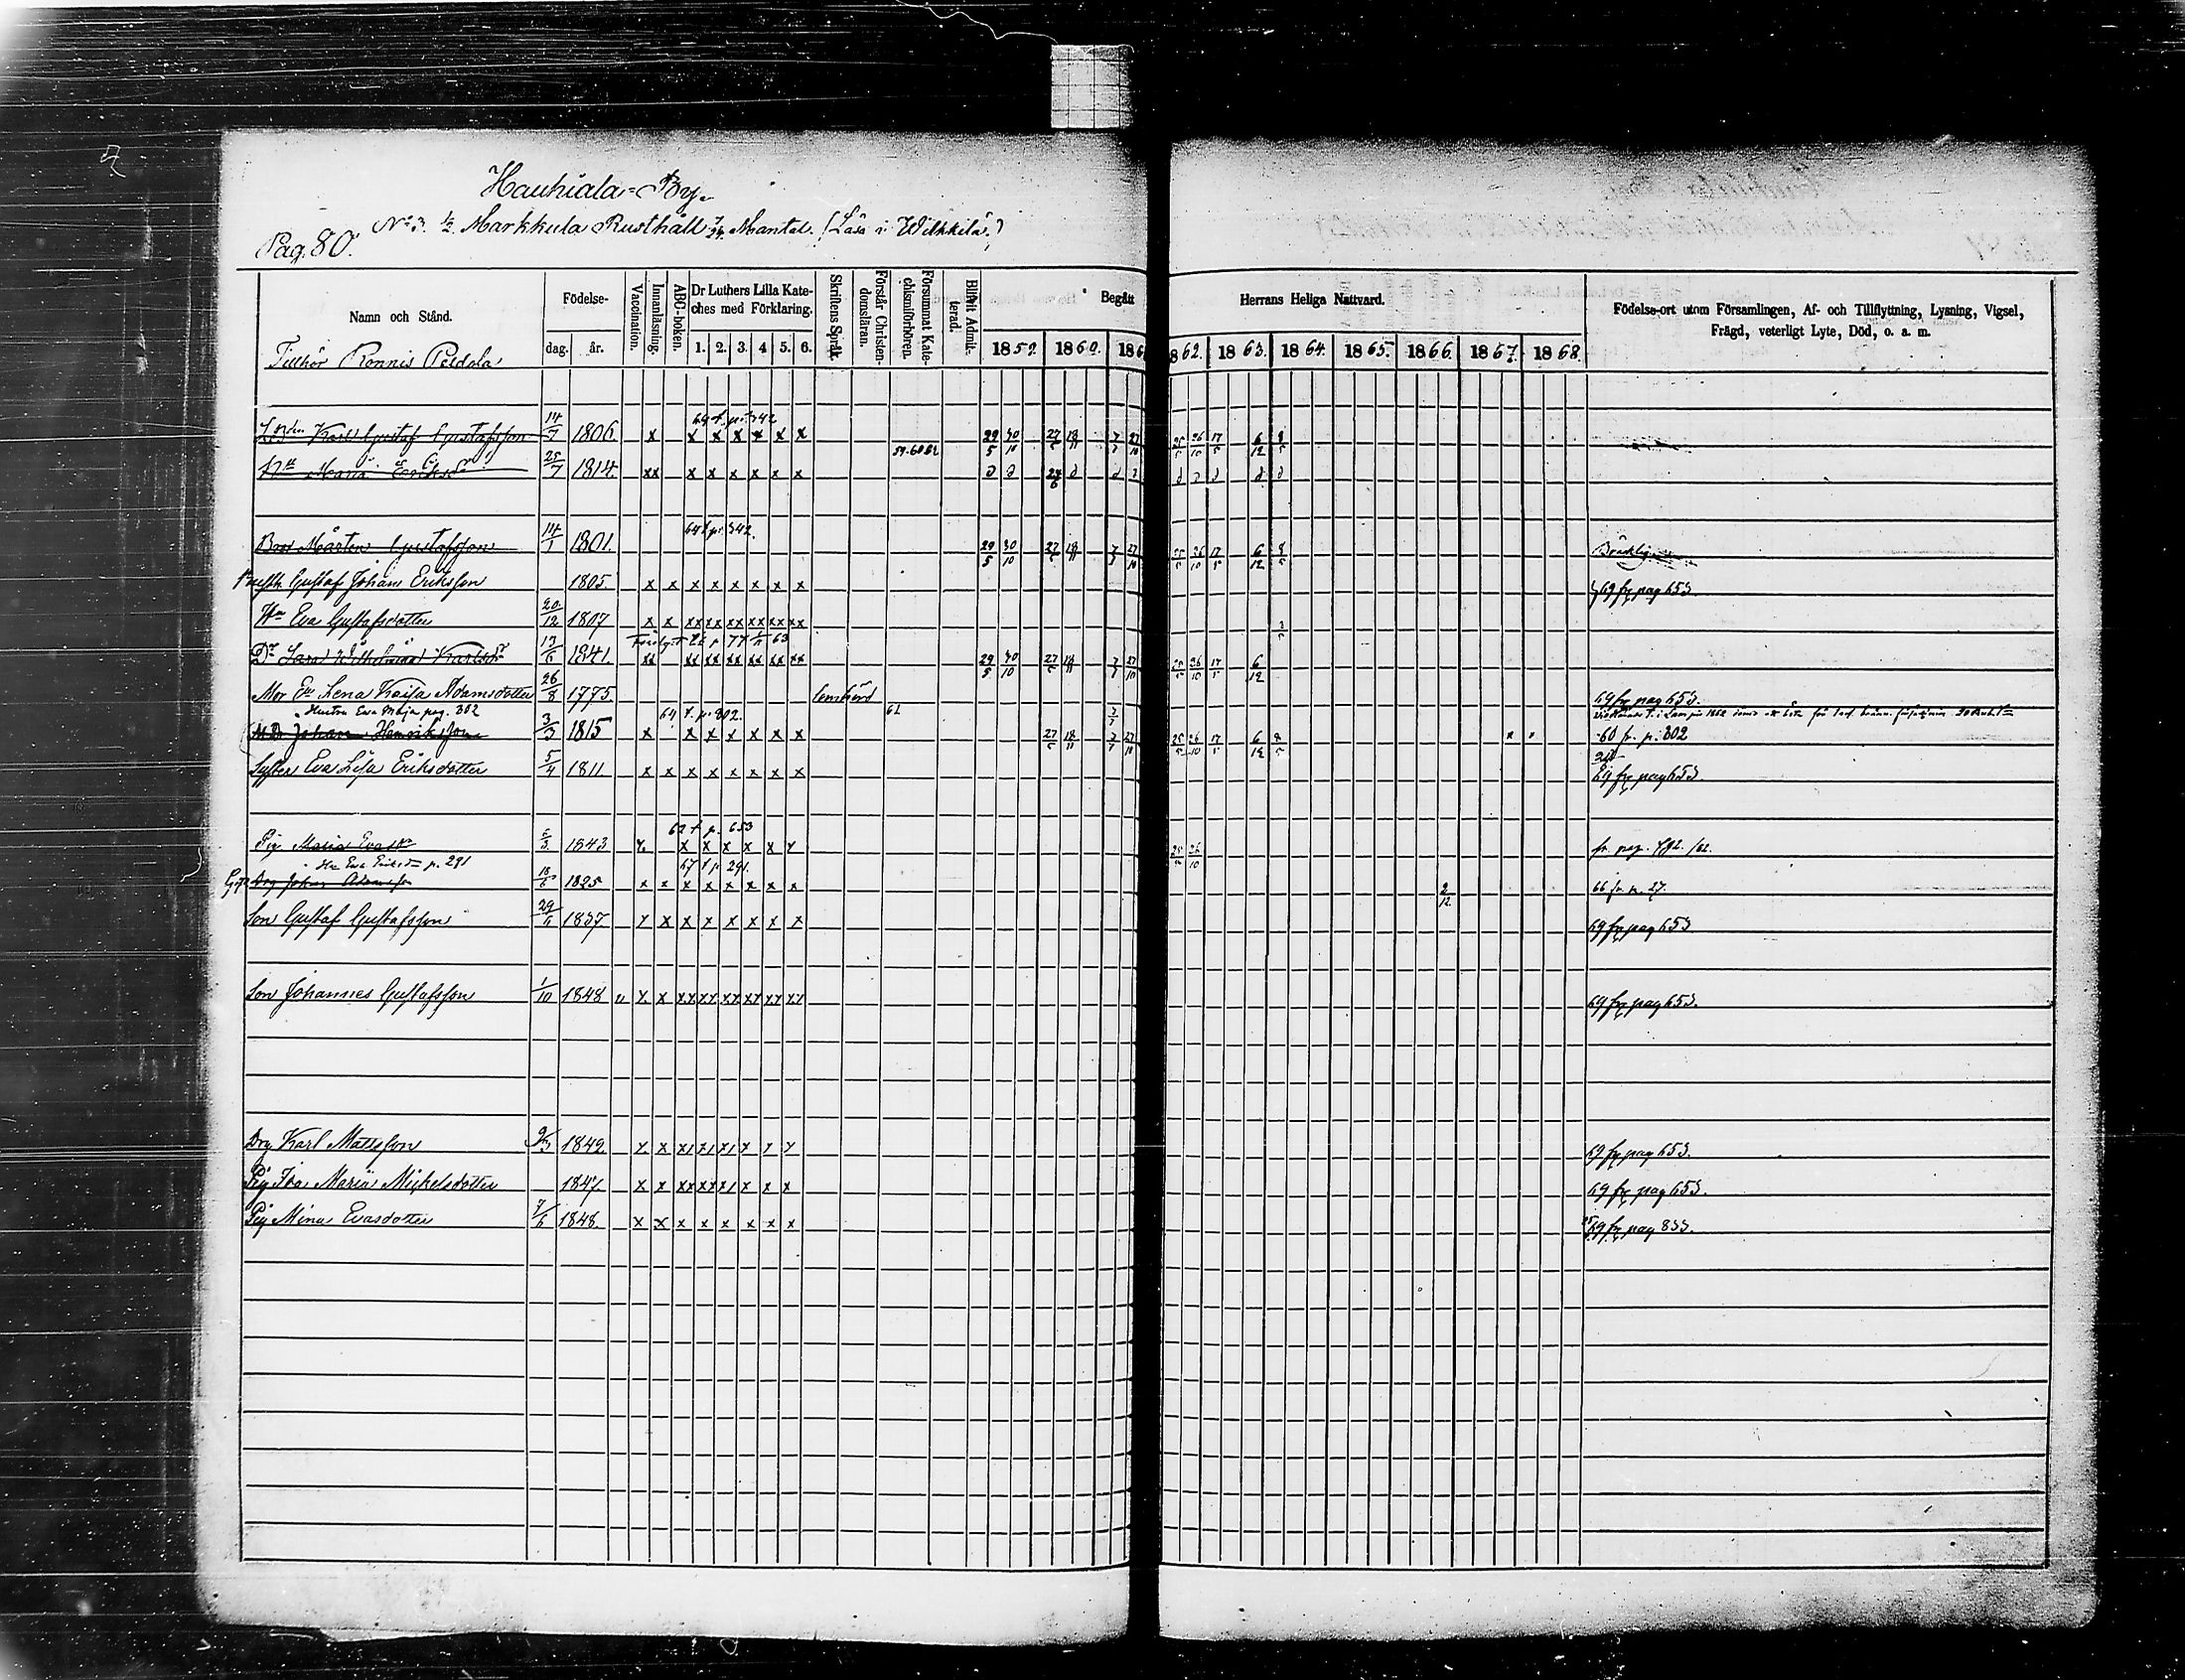 Hauhiala-By.
No 3. 1/2 Markkula Rusthåll 7/24 Mantal. (Läsa i Wilkkilä)
Pag. 80.
Namn och Stånd.
Tillhör Ronnis Peldola
Födelse-
dag. år.
Vaccination.
Innanläsning.
ABC-boken.
Dr Luthers Lilla Kate-
ches med Förklaring.
1. 2. 3. 4 5. 6.
Skriftens Språk.
Förstår Christen-
domsläran.
Försummat Kate-
chismiförhören.
Blifvit Admit-
terad.
Begått Herrans Heliga Nattvard.
1859. 1860. 186 62. 1863. 1864. 1865. 1866. 1867. 1868.
Födelse-ort utom Församlingen, Af- och Tillflyttning, Lysning, Vigsel,
Frägd, veterligt Lyte, Död, o. a. m.
64 t. p. 342
Karl Gustaf Gustafsson 14/7 1806 x x x x x x x 29/5 30/10 27/5 18/11 25/5 26/10 17/5 6/12 8/5
59.60.62
Maria Eriksdr 25/7 1814. xx x x x x x x
64 t p. 342.
Bror Mårten Gustafsson 14/1 1801. 29/5 30/10 27/5 18/11 25/5 26/10 17/5 6/12 8/5 Bräcklig
Gustaf Johan Eriksson 1805. x x x x x x x x 69 fr pag 653
Hu Eva Gustafsdotter 20/12 1807 x x xx xx xx xx xx xx
77 63
Dr Sara Wilhelmina Karlsdr 17/6 1841. xx xx xx xx xx xx xx 29/5 30/10 27/5 18/11 25/5 26/10 17/5 6/12
Mor Lena Kaisa Adamsdotter 26/8 1775. 69 fr pag 653
Hustru Eva Maja pag. 302
64 t. p. 302. 61
Johan Henriksson 3/3 1815 x x x x x x x 27/5 18/11 25/5 26/10 17/5 6/12 8/5 x x 60 fr. p. 302
Syster Eva Lisa Eriksdotter 5/4 1811 x x x x x x x x 69 fr pag 653
62 t p. 653
Pig Maria Evasdr 1843 x x x x x x x 25/5 26/10 fr. pag. /62.
Hu Eva Eriksdr p. 291
67 t p 291.
Drg Johan Adamsson 18/6 1825 x x x x x x x x 2/12 66 fr. p. 27.
Son Gustaf Gustafsson 29/11 1837 x x x x x x x x 69 fr pag 653
Son Johannes Gustafsson 1/10 1848 x x xx xx xx xx xx xx 69 fr pag 653.
Drg Karl Mattsson 9/3 1849. x x x x x x x x 69 fr pag 653.
Pig Ika Maria Mickelsdotter 1847. x x xx xx x x x x 69 fr pag 653.
Pig Mina Evasdotter 7/6 1848. x x x x x x x x 69 fr pag 833.